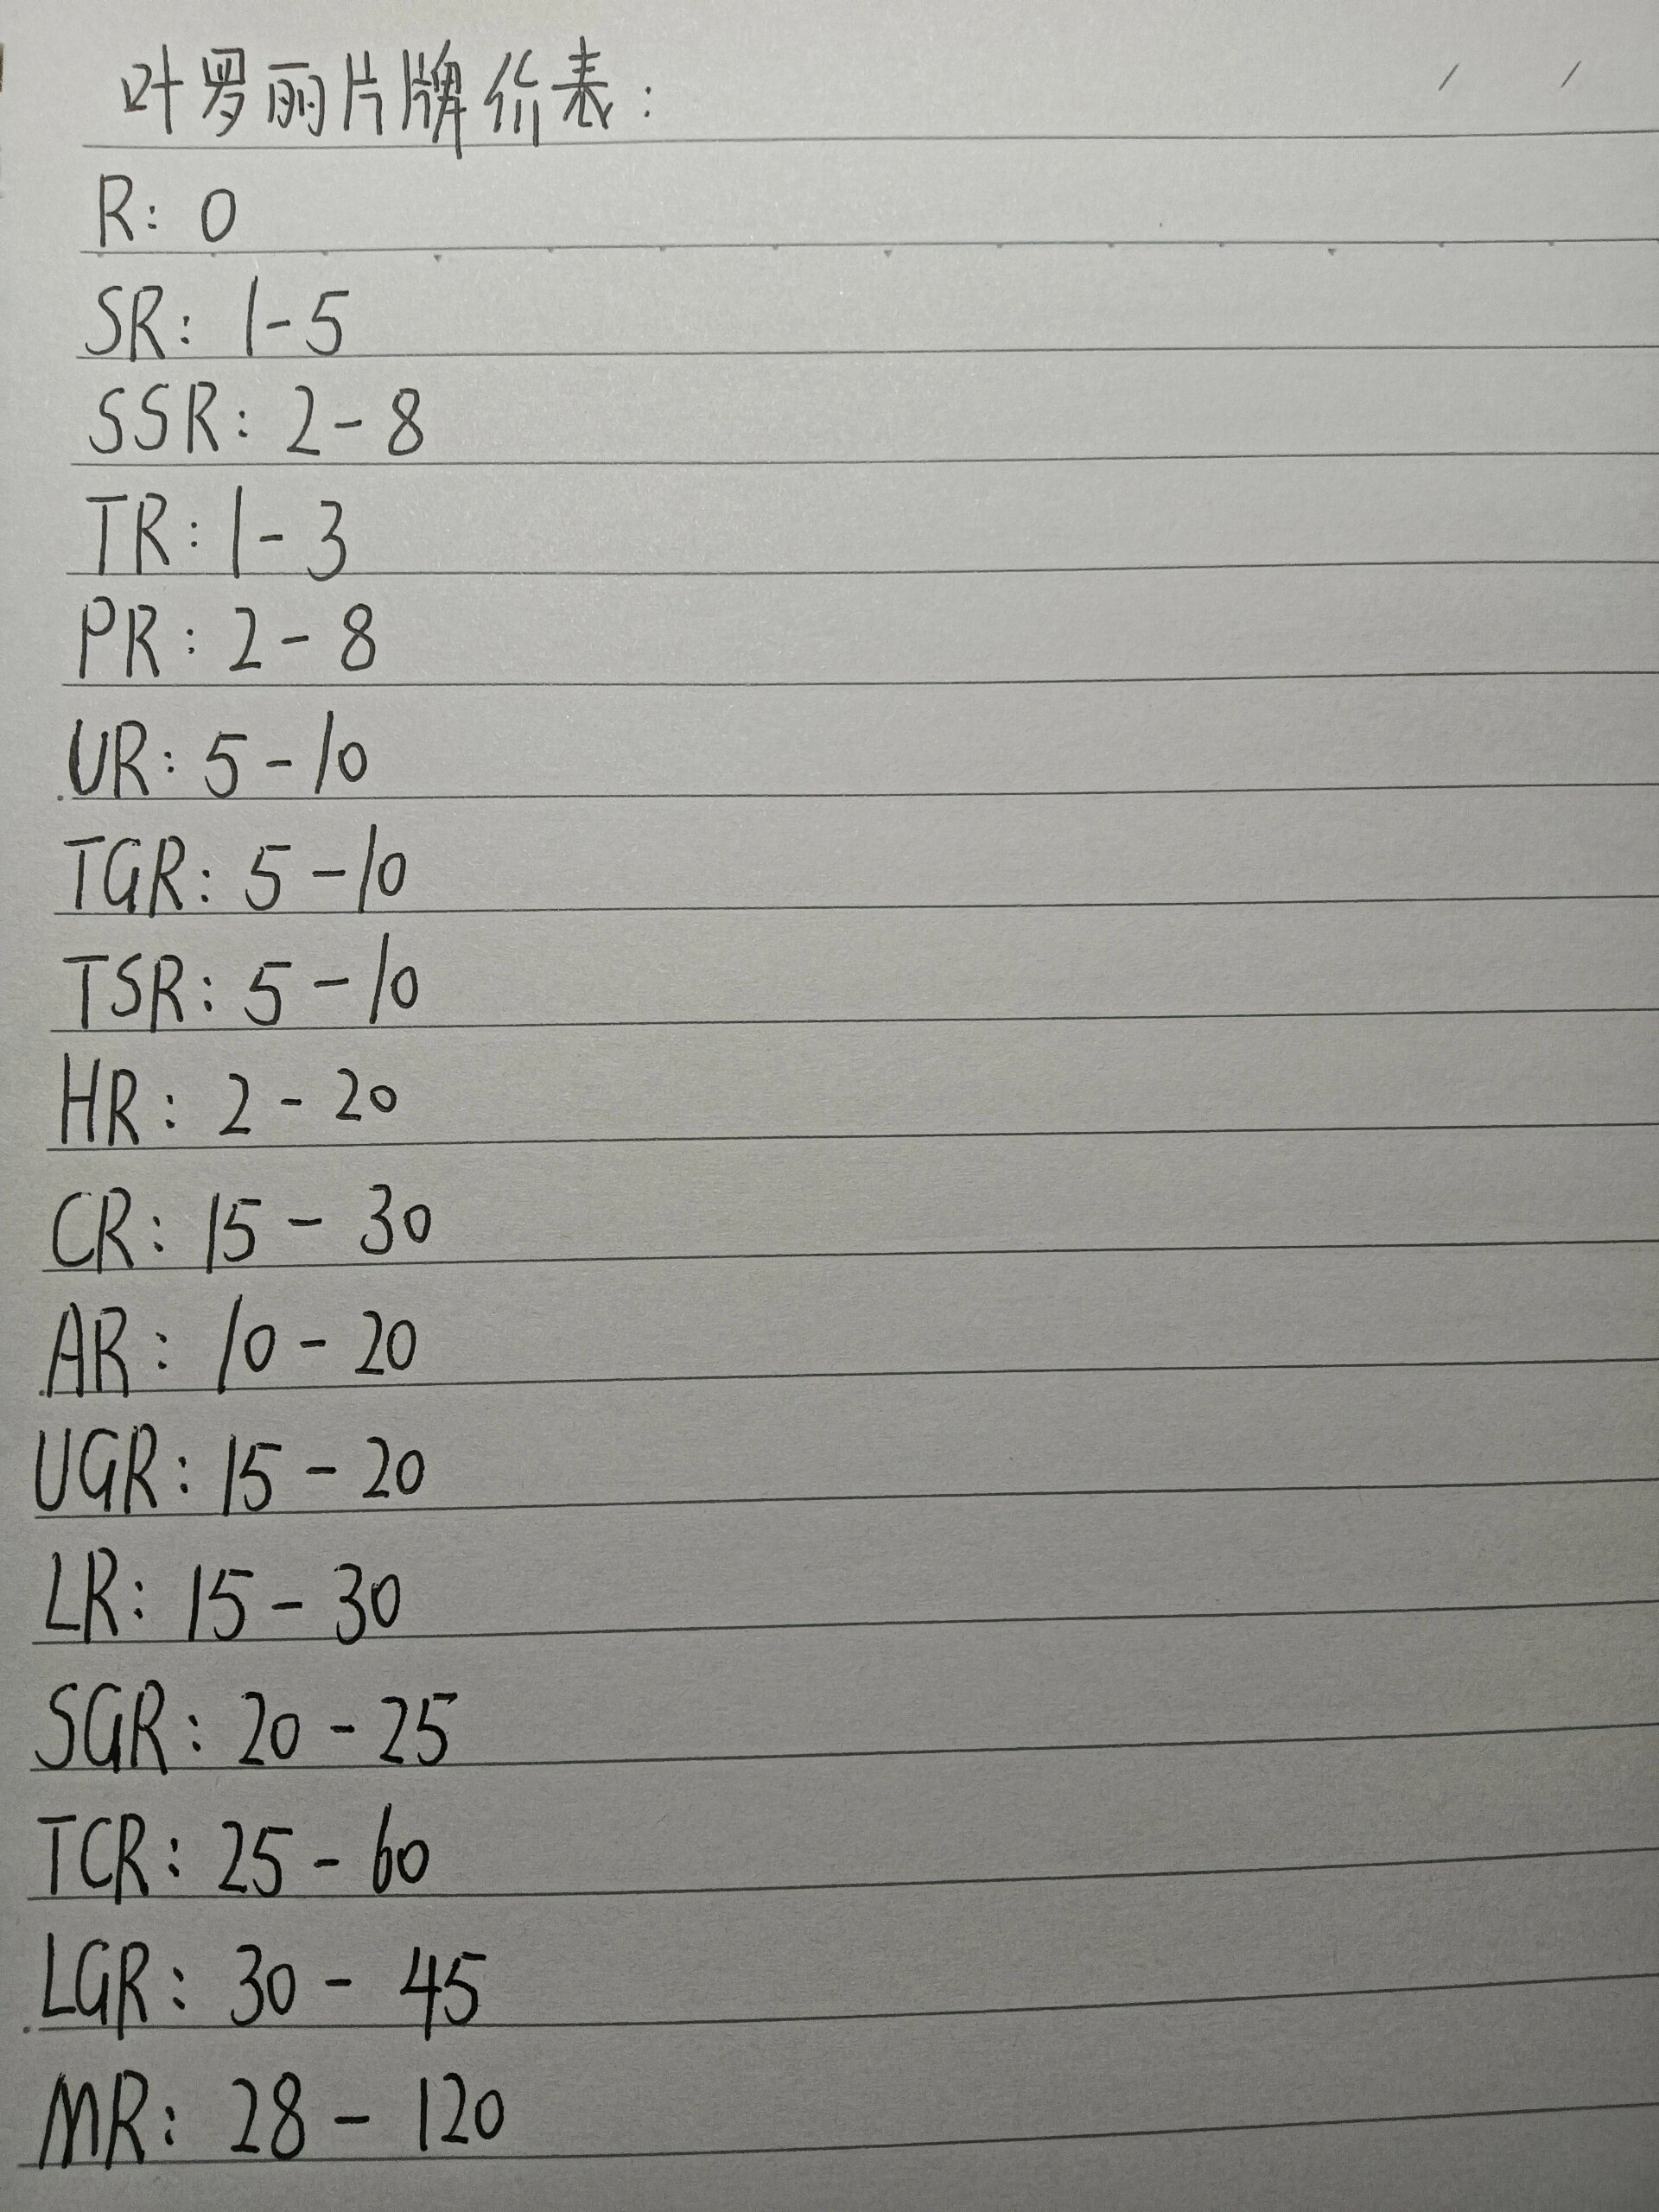 叶罗丽片牌价表：
R: 0
SR: 1-5
SSR: 2-8
TR: 1-3
PR: 2-8
UR: 5-10
TGR: 5-10
TSR: 5-10
HR: 2-20
CR: 15-30
AR: 10-20
UGR: 15-20
LR: 15-30
SGR: 20-25
TCR: 25-60
LGR: 30-45
MR: 28-120